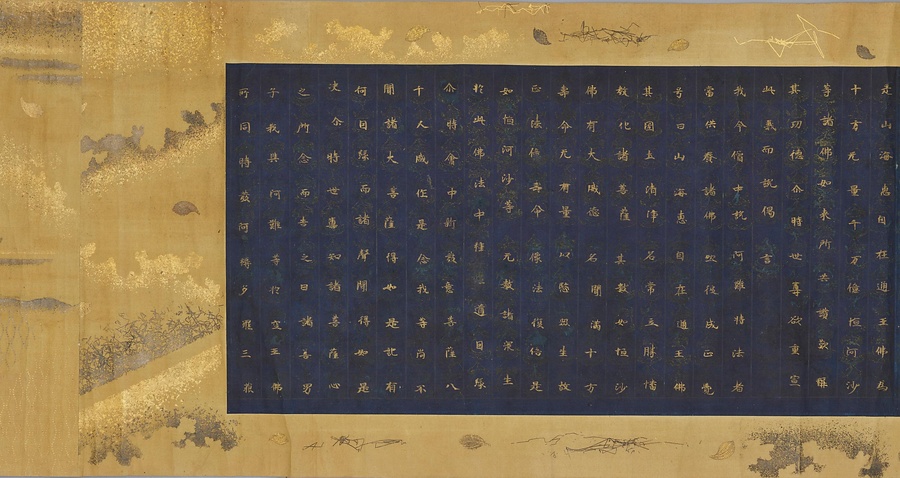 是山海慧自在通王佛為
十方无量千万億恒河沙
等諸佛如來所共讚歎稱
其功德尒時世尊欲重宣
此義而說偈言
我今僧中說阿難持法者
當供養諸佛然後成正覺
号曰山海慧自在通王佛
其國土清淨名常立勝幡
教化諸菩薩其數如恒沙
佛有大威德名聞滿十方
壽命无有量以愍衆生故
正法倍壽命像法復倍是
如恒河沙等无數諸衆生
於此佛法中種佛道因緣
尒時會中新發意菩薩八
千人咸作是念我等尚不
聞諸大菩薩得如是記有
何因緣而諸聲聞得如是
決尒時世尊知諸菩薩心
之所念而告之曰諸善男
子我與阿難等於空王佛
所同時發阿耨多羅三藐